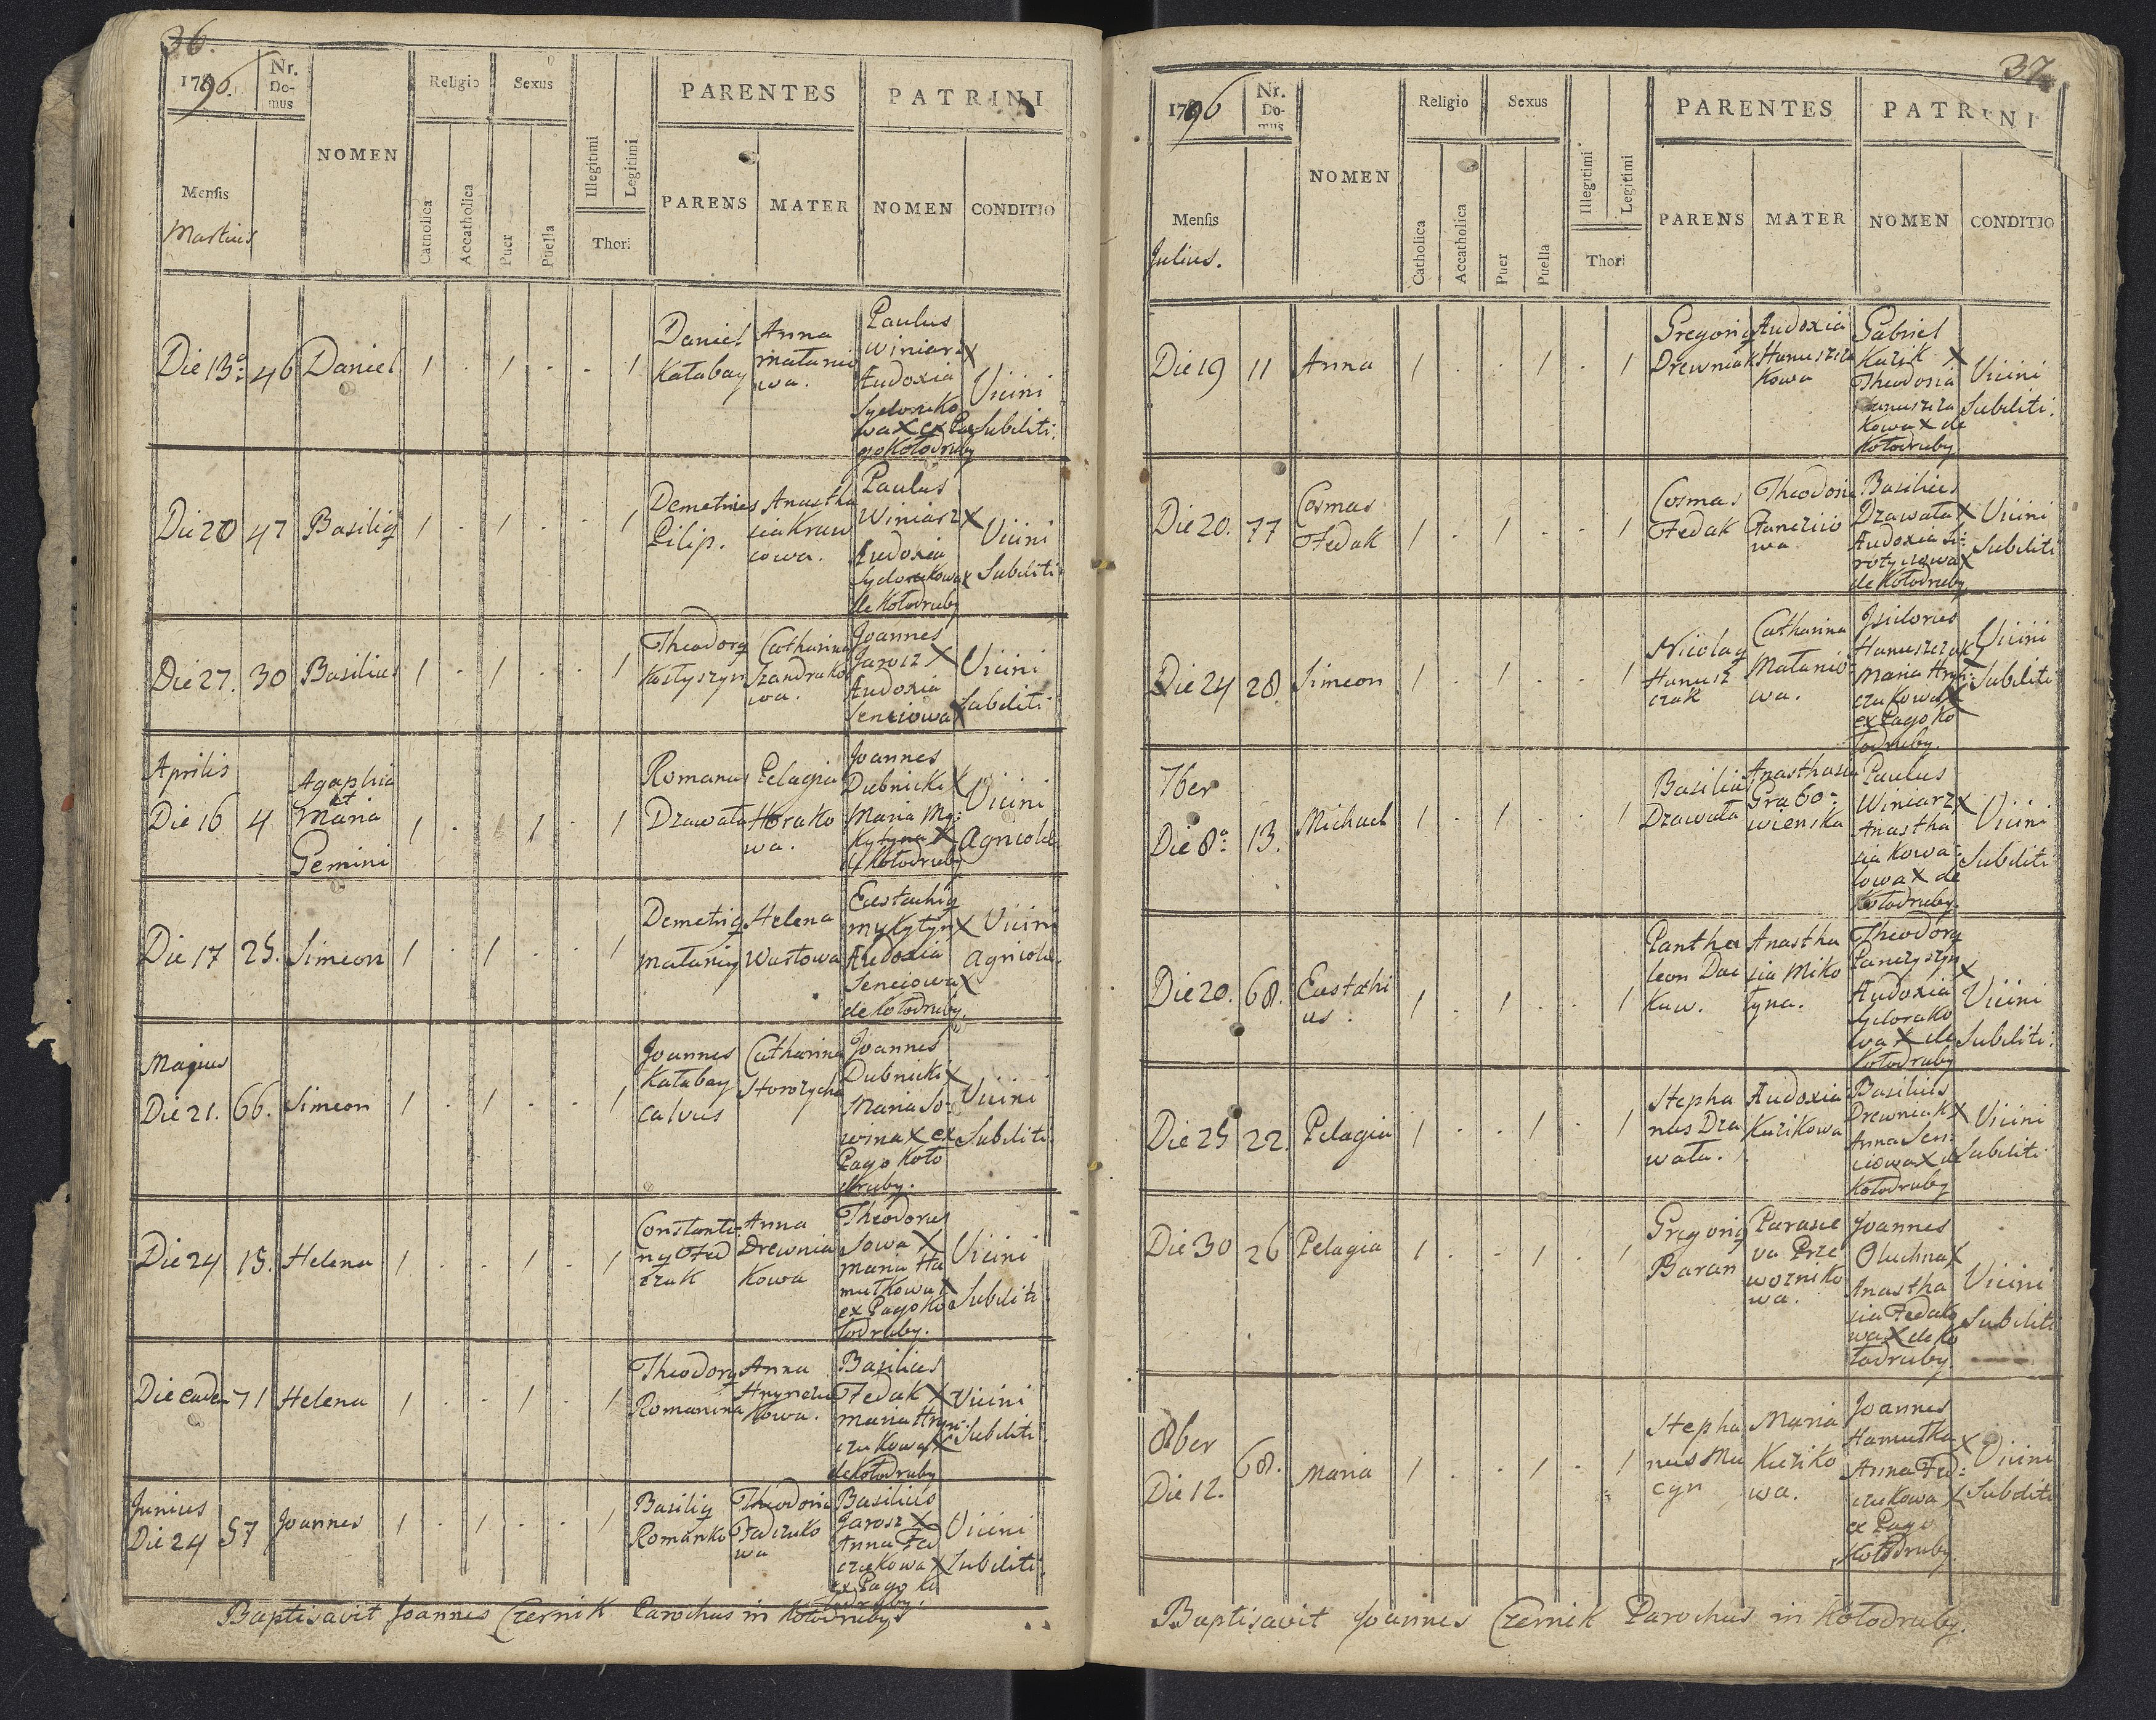 36.
1796.
Nr. Do-mus
NOMEN
Religio
Sexus
PARENTES
PATRINI
Mensis
Martius
Catholica
Accatholica
Puer
Puella
Illegitimi
Legitimi
Thori
PARENS
MATER
NOMEN
CONDITIO
Die 13a: 46 Daniel 1 . 1 . . 1
Daniel
Kałabay
Anna
Matanio
wa.
Paulus
Winiarz X
Audoxia
Sydorıko
wa X ex Pa
go Kołodruby
Vicini
Subditi.
Die 20 47 Basilig 1 . 1 . . 1
Demetrius
Pilip.
Anastha
sia Kraw
cowa.
Paulus
Winiarz X
Audoxia
Sydorukowa X
de Kołodruby
Vicini
Subditi
Die 27. 30 Basilius 1 . 1 . . 1
Theodorg
Kostyszyn
Catharina
Szandruko
wa.
Joannes
Jarosz X
Audoxia
Senciowa X
Vicini
Subditi
Aprilis
Die 16 4
Agaphia
et
Maria
Gemini
1 . . 1 . 1
Romanus
Dzawała
Pelagia
Horako
wa.
Joannes
Dubnicki X
Maria My:
kytyna X
de Kołodruby
Vicini
Agricolæ
Die 17 25. Simeon 1 . 1 . . 1
Demetrig
Mataniy
Helena
Wasłowa
Eustachig
Mykytyn X
Audoxia
Senciowa X
de Kołodruby.
Vicini
Agricolæ
Majus
Die 21. 66. Simeon 1 . 1 . . 1
Joannes
Kałabay
calvus
Catharina
Storozycha
Joannes
Dubnicki X
Maria So:
wina X ex
Pago Koło
druby.
Vicini
Subditi
Die 24 15. Helena 1 . . 1 . 1
Constanti:
ny Fed
czak
Anna
Drewnia
kowa
Theodorus
Sowa X
Maria Ha
mułkowa X
ex Pago Ko
łodruby.
Vicini
Subditi
Die eadem 71 Helena 1 . . 1 . 1
Theodorg
Romanina
Anna
Hrynczu
kowa.
Basilius
Fedak X
Maria Hryn:
czukowa X
de Kołodruby
Vicini
Subditi
Junius
Die 24 57 Joannes 1 . 1 . . 1
Basilig
Romanko
Theodosia
Fedczuko
wa
Basilius
Jarosz X
Anna Fed
czukowa X
ex Pago Ko
łodruby.
Vicini
Subditi.
Baptisavit Joannes Czernik Parochus in Kołodruby
37.
1796
Nr. Do-mus
NOMEN
Religio
Sexus
PARENTES
PATRINI
Mensis
Julius.
Catholica
Accatholica
Puer
Puella
Illegitimi
Legitimi
Thori
PARENS
MATER
NOMEN
CONDITIO
Die 19 11 Anna 1 . . 1 . 1
Gregorig
Drewniak
Audoxia
Hanuszcza
kowa
Gabriel
Kuzik X
Theodosia
Hanuszcza
kowa X de
Kołodruby
Vicini
Subditi.
Die 20. 77
Cosmas
Fedak
1 . 1 . . 1
Cosmas
Fedak
Theodosia
Pancziio
wa
Basilius
Dzawała X
Audoxia Si:
rotyuowa X
de Kołodruby
Vicini
Subditi
Die 24 28. Simeon 1 . 1 . . 1
Nicolag
Hanusz
czak
Catharina
Matanio
wa.
Isidorus
Hanuszczak X
Maria Hryn:
czukowa X
ex Pago Ko
łodruby.
Vicini
Subditi
7ber
Die 8a: 13. Michael 1 . 1 . . 1
Basilius
Dzawała
Anasthasia
Grabo=
wienska
Paulus
Winiarz X
Anastha
sia Kowa=
lowa X de
Kołodruby.
Vicini
Subditi
Die 20. 68.
Eustathi
us.
1 . 1 . . 1
Pantha
leon Dac
kuw.
Anastha
sia Miko
tyna.
Theodorg
Panczyszyn
X
Audoxia
Sydorako
wa X de
Kołodruby
Vicini
Subditi:
Die 25 22. Pelagia 1 . . 1 . 1
Stepha
nus Dza
wała.
Audoxia
Kuzikowa
Basilius
Drewniak X
Anna Sen:
ciowa X de
Kołodruby
Vicini
Subditi
Die 30 26 Pelagia 1 . . 1 . 1
Gregorig
Baran
Parasce
va Prze
wozniko
wa.
Joannes
Oluchna X
Anastha
sia Fedako
wa X de Ko
łodruby.
Vicini
Subditi
8ber
Die 12. 68. Maria 1 . . 1 . 1
Stepha
nus Mu
cyn
Maria
Kuziko
wa.
Joannes
Hamułka X
Anna Fed:
czukowa X
ex Pago
Kołodruby.
Vicini
Subditi
Baptisavit Joannes Czernik Parochus in Kołodruby.